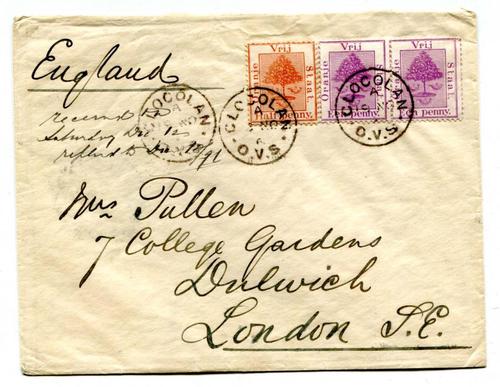 England
Vrij
Oranje
Staat.
Half Penny.
Vrij
Oranje
Staat.
Een Penny.
Vrij
Oranje
Staat.
Een Penny.
CLOCOLAN
O.V.S
CLOCOLAN
A
NO
O.V.S
CLOCOLAN
A
19 NO
O.V.S
received
Saturday Dec 12
replied to Dec 18/91
Mrs Pullen
7 College Gardens
Dulwich
London S.E.